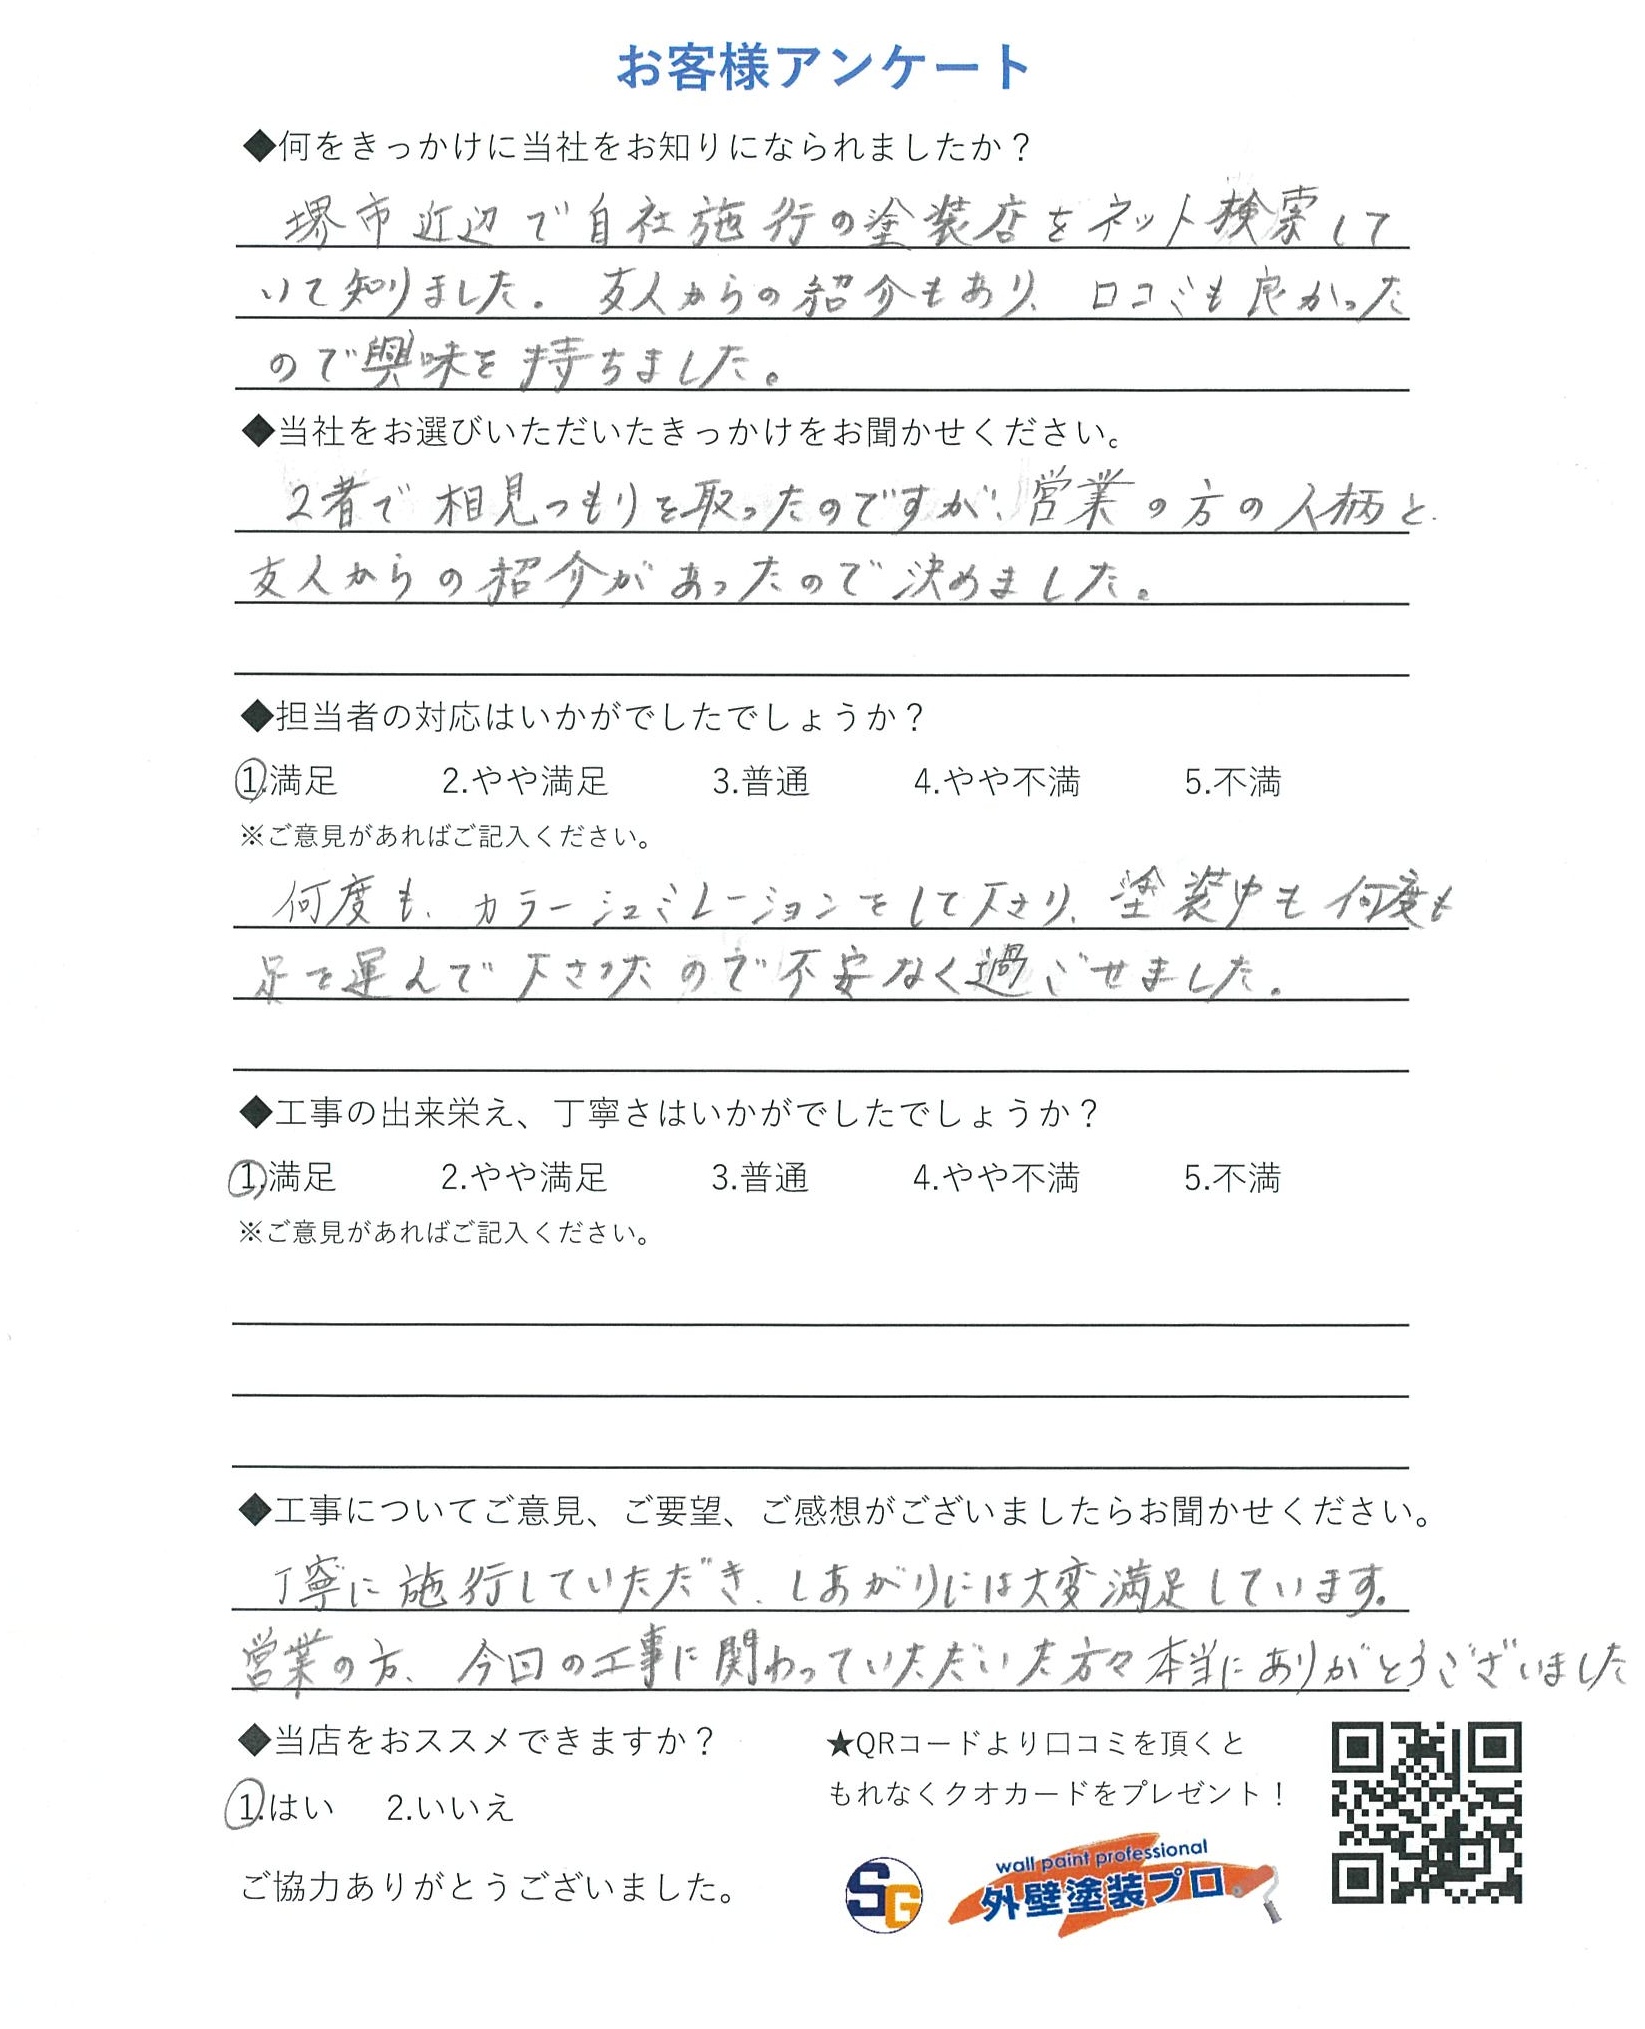 お客様アンケート
◆何をきっかけに当社をお知りになられましたか？
堺市近辺で自社施行の塗装店をネット検索して
いて知りました。友人からの紹介もあり、口コミも良かった
ので興味を持ちました。
◆当社をお選びいただいたきっかけをお聞かせください。
2者で相見つもりを取ったのですが、営業の方の人柄と
友人からの紹介があったので決めました。
◆担当者の対応はいかがでしたでしょうか？
1.満足 2.やや満足 3.普通 4.やや不満 5.不満
※ご意見があればご記入ください。
何度も、カラーシュミレーションをして下さり、塗装中も何度も
足を運んで下さったので不安なく過ごせました。
◆工事の出来栄え、丁寧さはいかがでしたでしょうか？
1.満足 2.やや満足 3.普通 4.やや不満 5.不満
※ご意見があればご記入ください。
◆工事についてご意見、ご要望、ご感想がございましたらお聞かせください。
丁寧に施行していただき、しあがりには大変満足しています。
営業の方、今回の工事に関わっていただいた方々本当にありがとうございました
◆当店をおススメできますか？
1.はい 2.いいえ
ご協力ありがとうございました。
★QRコードより口コミを頂くと
もれなくクオカードをプレゼント！
SG
wall paint professional
外壁塗装プロ